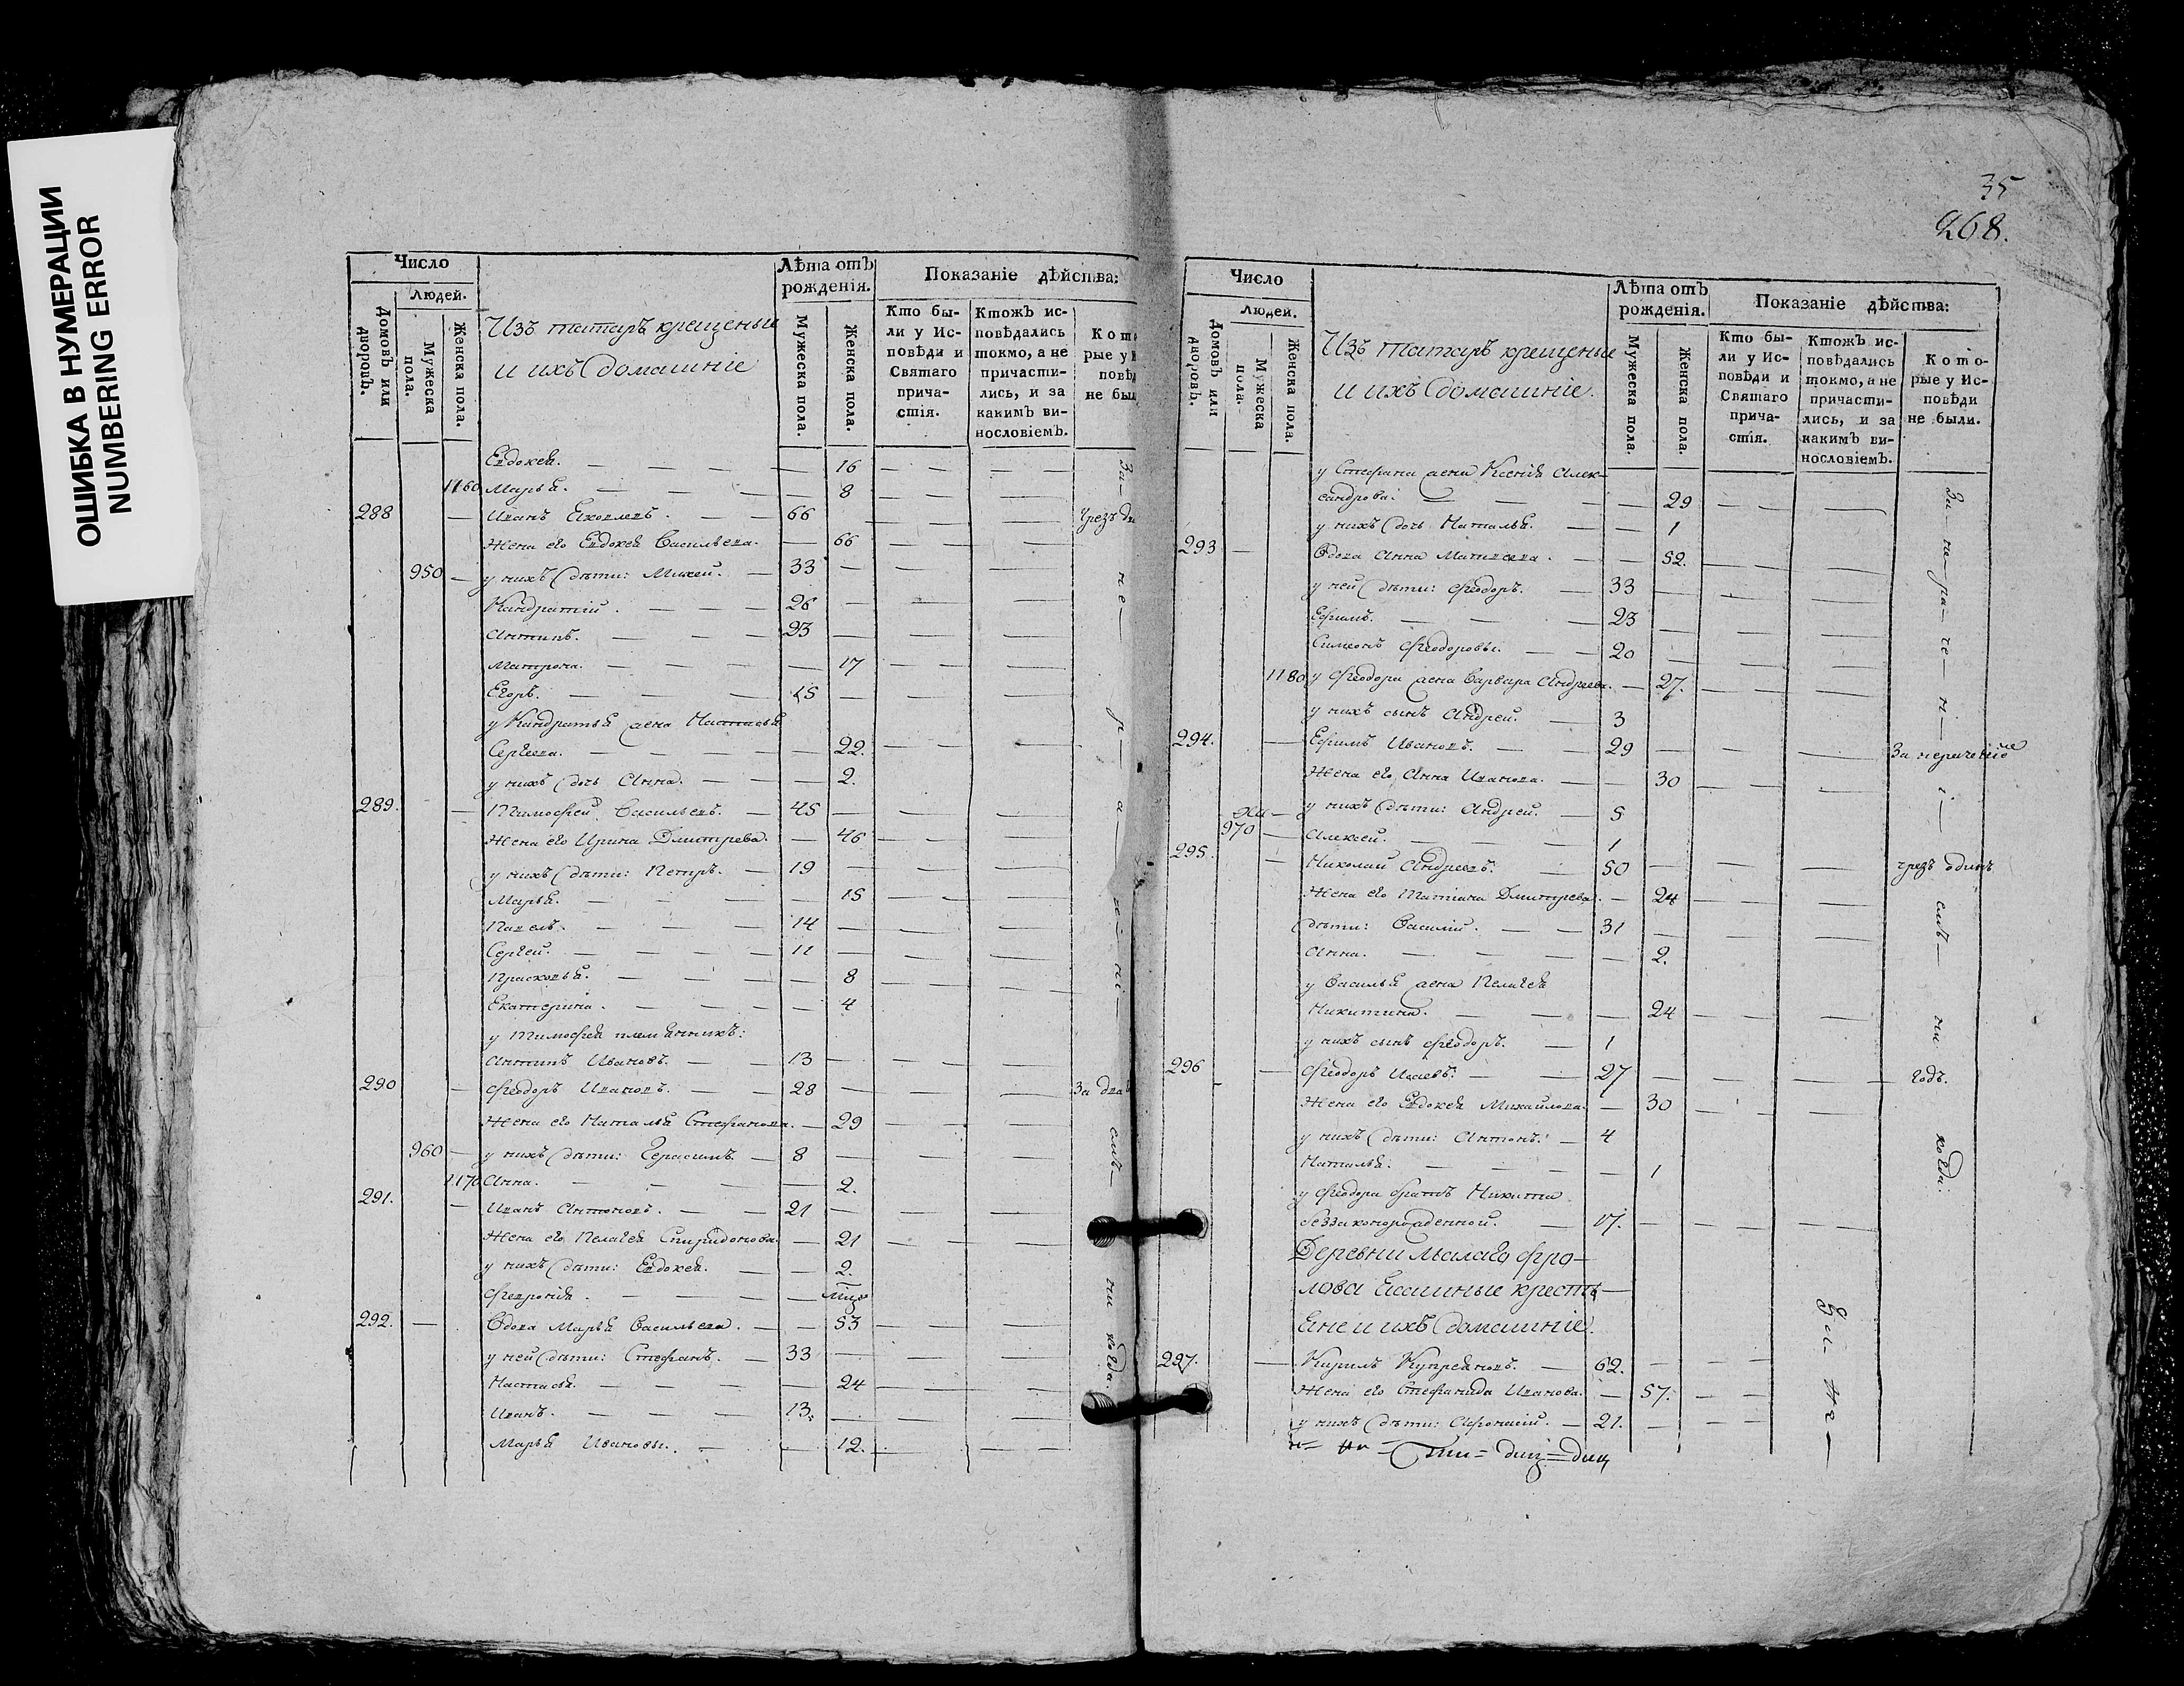 ОШИБКА В НУМЕРАЦИИ
NUMBERING ERROR
Число
Людей.
Домовъ или дворовъ.
Мужеска пола.
Женска пола.
Изъ татаръ крещеные
и ихъ домашніе
Лѣта отъ рожденія.
Мужеска пола.
Женска пола.
Показаніе дѣйства:
Кто бы-
ли у Ис-
повѣди и
Святаго
прича-
стія.
Ктожъ ис-
повѣдались
токмо, а не
причасти-
лись, и за
какимъ ви-
нословіемъ.
Кото
рые у И
повѣд
не был
Евдокея. 16
1160 Марья. 8
288 Иванъ Яковлевъ. 66
Жена его Евдокея Васильева. 66
950 у нихъ дѣти: Михей. 33
Кандратій. 26
Антипъ. 23
Матрона. 17
Егоръ. 15
у Кандратья жена Настасья
Сергеева. 22.
у нихъ дочь Анна. 2.
289. Тимофей Васильевъ. 45
Жена его Ирина Дмитрева. 46
у нихъ дѣти: Петръ. 19
Марья. 15
Павелъ. 14
Сергей. 11
Прасковья. 8
Екатерина. 4
у Тимофея племянникъ:
Антипъ Ивановъ. 13
290 Феодоръ Ивановъ. 28 За два
Жена его Наталья Стефанова. 29
960 у нихъ дѣти: Герасимъ. 8
1170 Анна. 2.
291. Иванъ Антоновъ. 21
Жена его Пелагея Спиридонова. 21
у нихъ дѣти: Евдокея. 2.
Февронія.
292. Вдова Марья Васильева. 53
у ней дѣти: Стефанъ. 33
Настасья. 24
Иванъ. 13.
Марья Ивановы. 12.
За не р а ч е ні емъ ни когда.
35
268.
Число
Людей.
Домовъ или дворовъ.
Мужеска пола.
Женска пола.
Изъ татаръ крещеные
и ихъ домашніе.
Лѣта отъ рожденія.
Мужеска пола.
Женска пола.
Показаніе дѣйства:
Кто бы-
ли у Ис-
повѣди и
Святаго
прича-
стія.
Ктожъ ис-
повѣдались
токмо, а не
причасти-
лись, и за
какимъ ви-
нословіемъ.
Кото-
рые у Ис-
повѣди
не были.
у Стефана жена Ксенія Алек-
сандрова. 29
у нихъ дочь Наталья. 1
293 Вдова Анна Матвеева. 52.
у ней дѣти: Феодоръ. 33
Ефимъ. 23
Симеонъ Феодоровы. 20
1180 у Феодора жена Варвара Андреева. 27.
у нихъ сынъ Андрей. 3
294. Ефимъ Ивановъ. 29
Жена его Анна Иванова. 30
у нихъ дѣти: Андрей. 5
970 Алексей. 1
295. Николай Андреевъ. 50 чрезъ одинъ
Жена его Татіана Дмитрева. 24
дѣти: Василій. 31
Анна. 2.
у Василья жена Пелагея
Никитина. 24
у нихъ сынъ Феодоръ. 1
296 Феодоръ Исаевъ. 27 годъ.
Жена его Евдокея Михайлова. 30
у нихъ дѣти: Антонъ. 4
Наталья. 1
у Феодора братъ Никита
беззаконорожденной. 17.
Деревни Малаго Фро-
лова Ясашные кресть-
яне и ихъ домашніе.
297. Кирилъ Купреяновъ. 62.
Жена его Стефанида Иванова. 57.
у нихъ дѣти: Афонасій. 21.
За не ра че ні емъ ни когда.